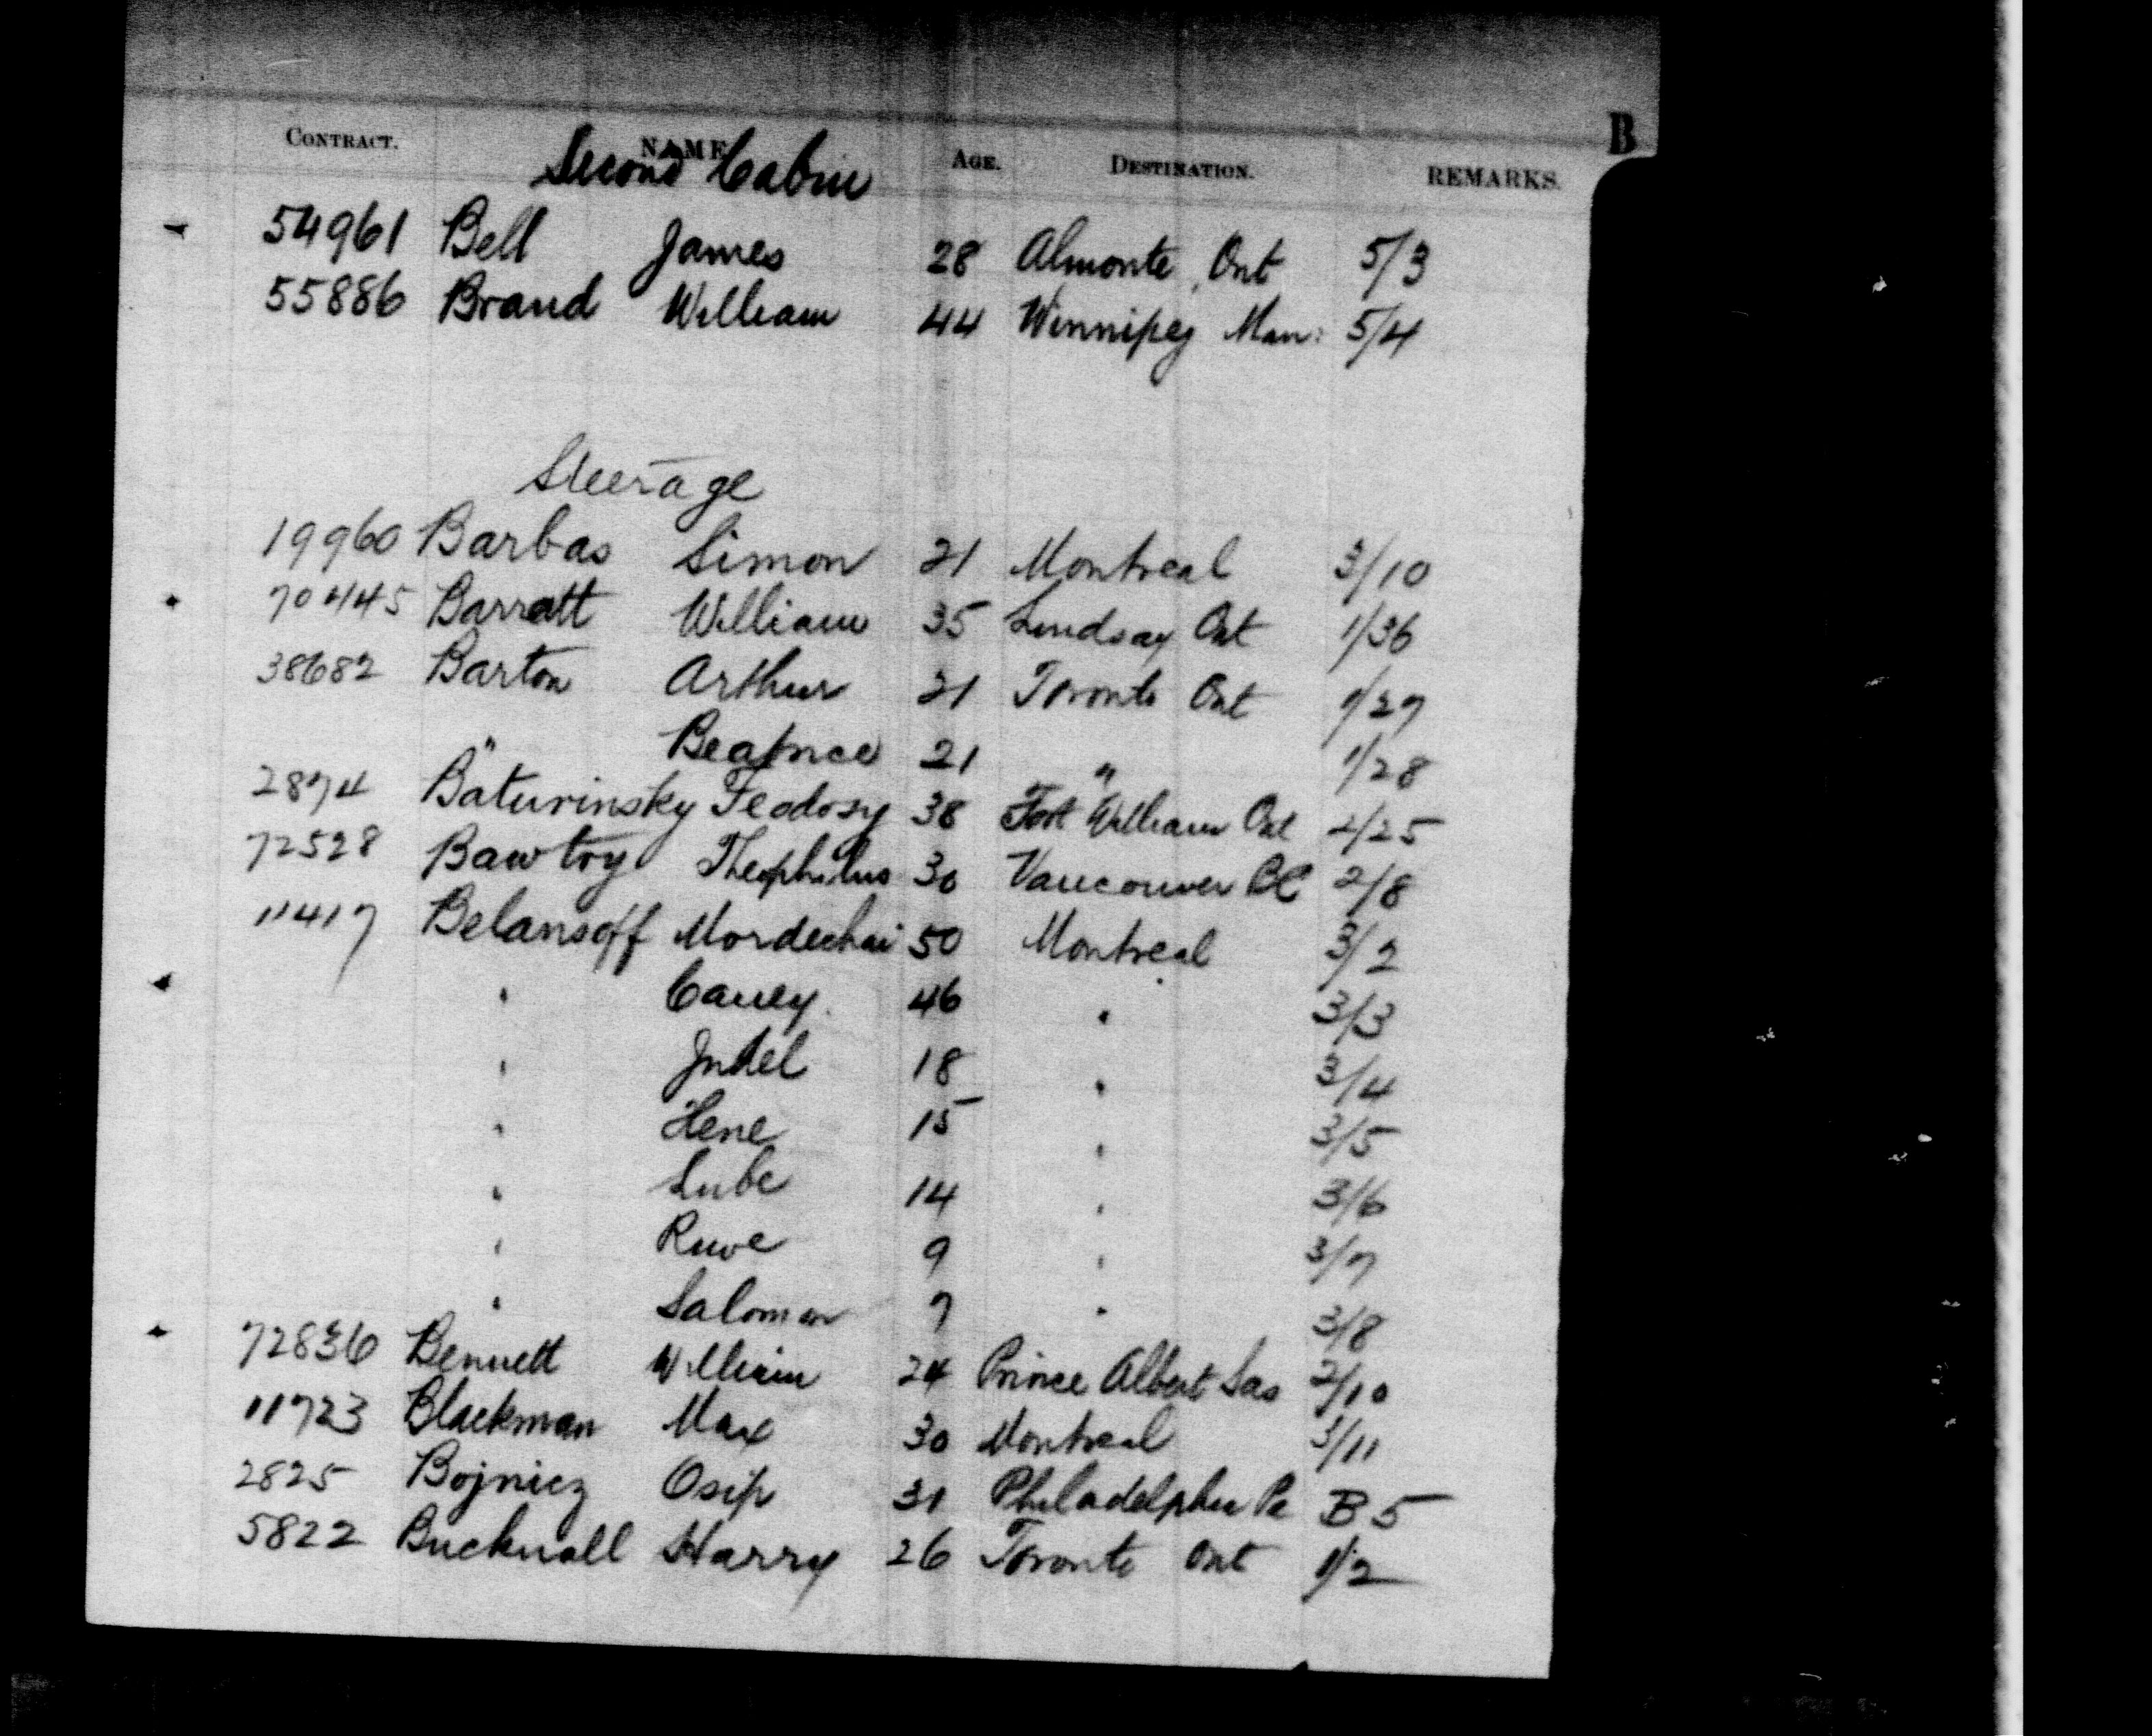 B
CONTRACT. NAME AGE. DESTINATION. REMARKS.
Second Cabin
54961 Bell James 28 Almonte, Ont 5/3
55886 Brand William 44 Winnipeg Man: 5/4
Steerage
19960 Barbas Simon 21 Montreal 3/10
70445 Barratt William 35 Lindsay Ont 1/36
38682 Barton Arthur 21 Toronto Ont 1/27
" Beatrice 21 " 1/28
2874 Baturinsky Feodosy 38 Fort William Ont 2/25
72528 Bawtry Theophilus 30 Vancouver BC 2/8
11417 Belansoff Mordechai 50 Montreal 3/2
" 46 " 3/3
" Judel 18 " 3/4
" Hene 15 " 3/5
" Lube 14 " 3/6
" Ruwe 9 " 3/7
" Salomon 7 " 3/8
72836 Bennett William 24 Prince Albert Sas 2/10
11723 Blackman Max 30 Montreal 3/11
2825 Bojnicz Osip 31 Philadelphia Pa B 5
5822 Bucknall Harry 26 Toronto Ont 1/2